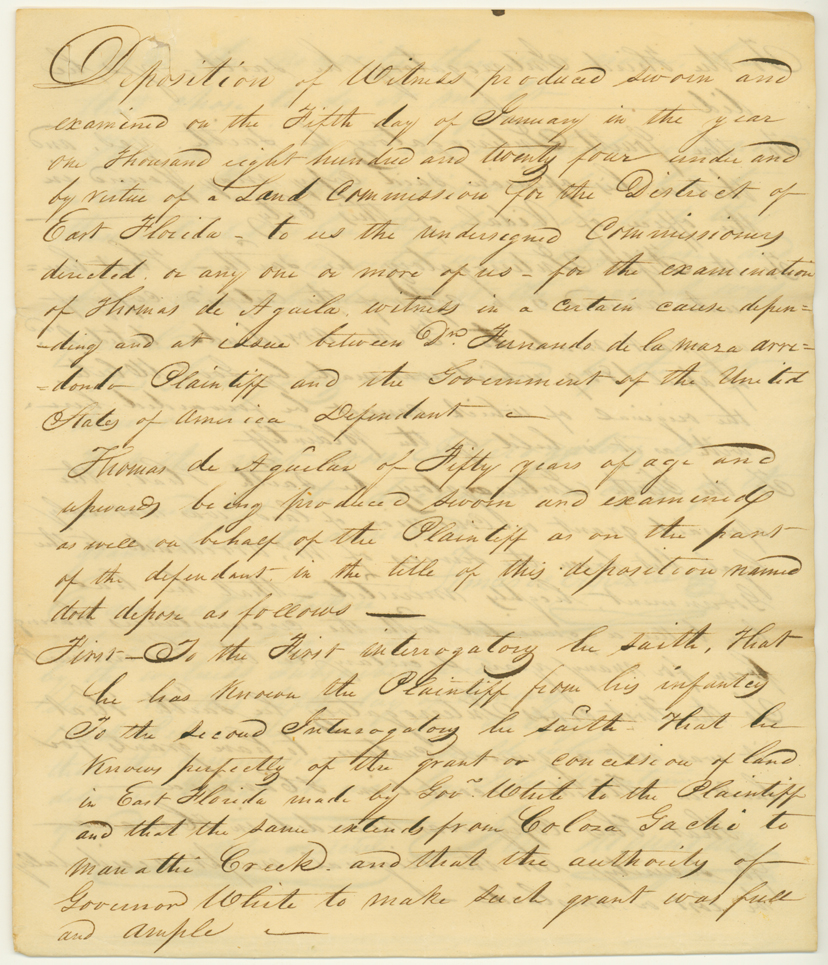 Deposition of Witness produced sworn and
examined on the Fifth day of January in the year
one Thousand eight hundred and twenty four under and
by virtue of a Land Commission for the District of
East Florida - to us the undersigned Commissioners
directed. or any one or more of us - for the examination
of Thomas de Aguila. witness in a certain cause depen=
=ding and at issue between Dn. Fernando de la maza arre=
=dondo Plaintiff and the Government of the United
States of America Defendant
Thomas de Aguilar of Fifty years of age and
upwards being produced sworn and examined
as well on behalf of the Plaintiff as on the part
of the defendant. in the title of this deposition named
doth depose as follows —
First — To the First interrogatory he saith, That
he has Known the Plaintiff from his infantcy
To the second Interrogatory he saith - That he
Knows perfectly of the grant or concession of land
in East Florida made by Govr. White to the Plaintiff
and that the same extends from Colosa Gachi to
manattie Creek. and that the authority of
Governor White to make such grant was full
and ample —